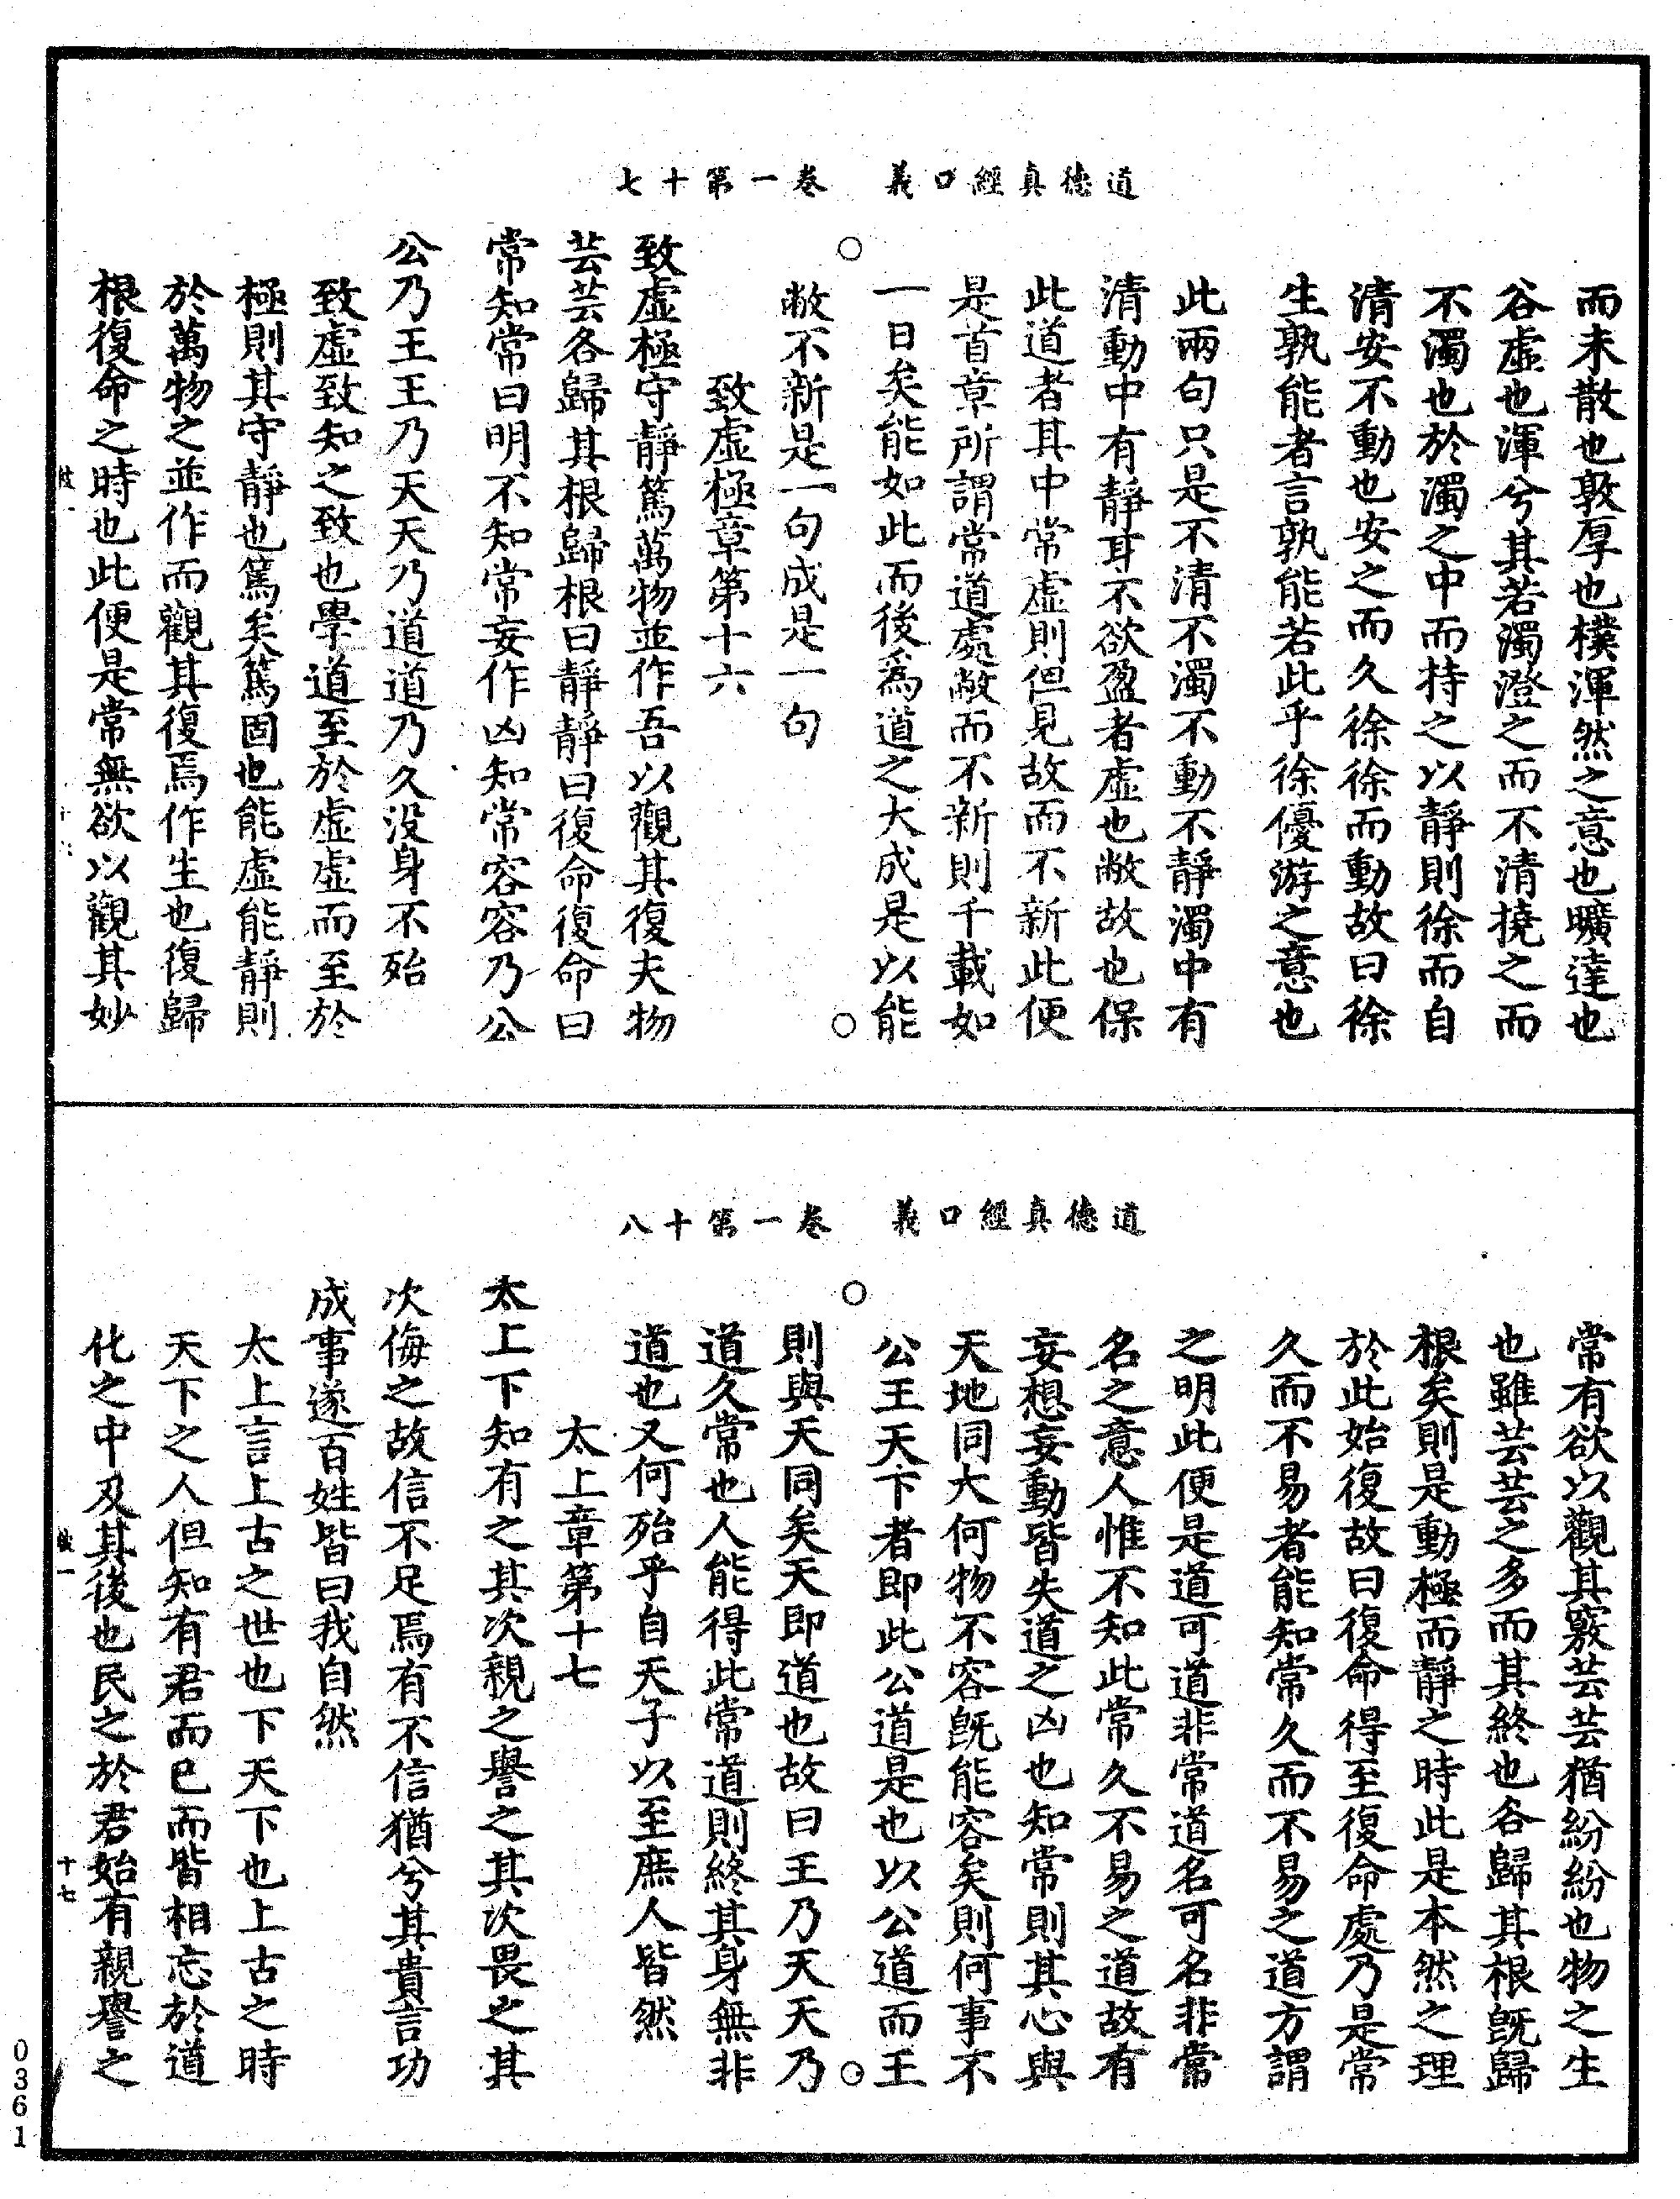 道德真經口義　卷一第十七
而未散也敦厚也樸渾然之意也曠達也
谷虛也渾兮其若濁澄之而不清撓之而
不濁也於濁之中而持之以靜則徐而自
清安不動也安之而久徐徐而動故曰徐
生孰能者言孰能若此乎徐優游之意也
此兩句只是不清不濁不動不靜濁中有
清動中有靜耳不欲盈者虛也敝故也保
此道者其中常虛則但見故而不新此便
是首章所謂常道處敝而不新則千載如
一日矣能如此而後爲道之大成是以能
敝不新是一句成是一句
致虛極章第十六
致虛極守靜篤萬物並作吾以觀其復夫物
芸芸各歸其根歸根曰靜靜曰復命復命曰
常知常曰明不知常妄作凶知常容容乃公
公乃王王乃天天乃道道乃久沒身不殆
致虛致知之致也學道至於虛虛而至於
極則其守靜也篤矣篤固也能虛能靜則
於萬物之並作而觀其復焉作生也復歸
根復命之時也此便是常無欲以觀其妙
道德真經口義　卷一第十八
常有欲以觀其竅芸芸猶紛紛也物之生
也雖芸芸之多而其終也各歸其根既歸
根矣則是動極而靜之時此是本然之理
於此始復故曰復命得至復命處乃是常
久而不易者能知常久而不易之道方謂
之明此便是道可道非常道名可名非常
名之意人惟不知此常久不易之道故有
妄想妄動皆失道之凶也知常則其心與
天地同大何物不容既能容矣則何事不
公王天下者即此公道是也以公道而王
則與天同矣天即道也故曰王乃天天乃
道久常也人能得此常道則終其身無非
道也又何殆乎自天子以至庶人皆然
太上章第十七
太上下知有之其次親之譽之其次畏之其
次侮之故信不足焉有不信猶兮其貴言功
成事遂百姓皆曰我自然
太上言上古之世也下天下也上古之時
天下之人但知有君而已而皆相忘於道
化之中及其後也民之於君始有親譽之
十七
0361